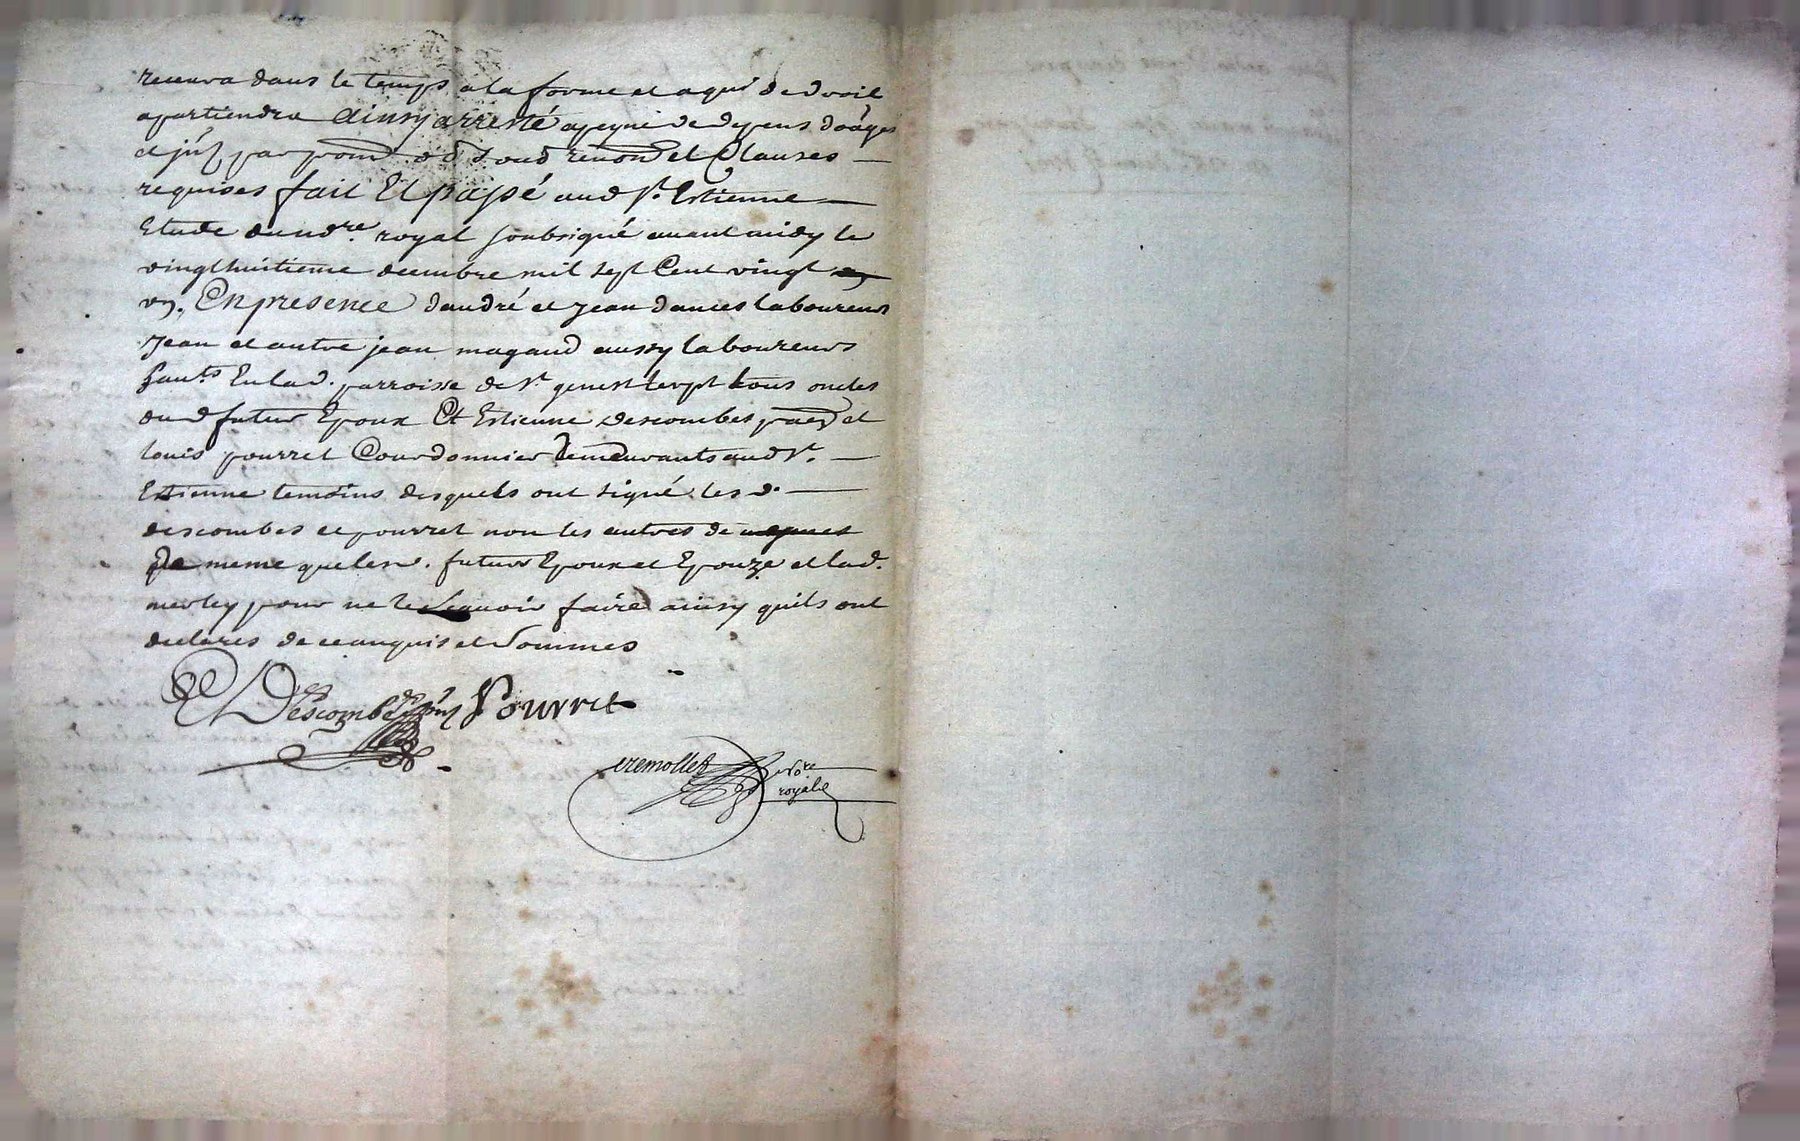 receura dans le temps a la forme et a qui de droit
apartiendra ainsy arresté a peyne de depens doages
et jnts par prom. obd soud renond et Clauses
requises fait Et passé aud st. Estienne
Etude du nore. royal soubsigné auant midy le
vingthuitieme decembre mil sept Cent vingt
vn. En presence dandré et jean dances laboureurs
jean et autre jean magand aussy laboureurs
hants En lad. parroisse de st genest lerpt tous oncles
dud futur Epoux Et Estienne descombes pratn et
louis pourret Courdonnier demeurants aud st.
Estienne temoins desquels ont signé les d.
descombes et pourret non les autres de
de meme que lesd. futurs Epoux et Epouze et lad.
merley pour ne le scauoir faire ainsy quils ont
declares de ce enquis et sommes
Descombes Pourret
cremollet nore
royal